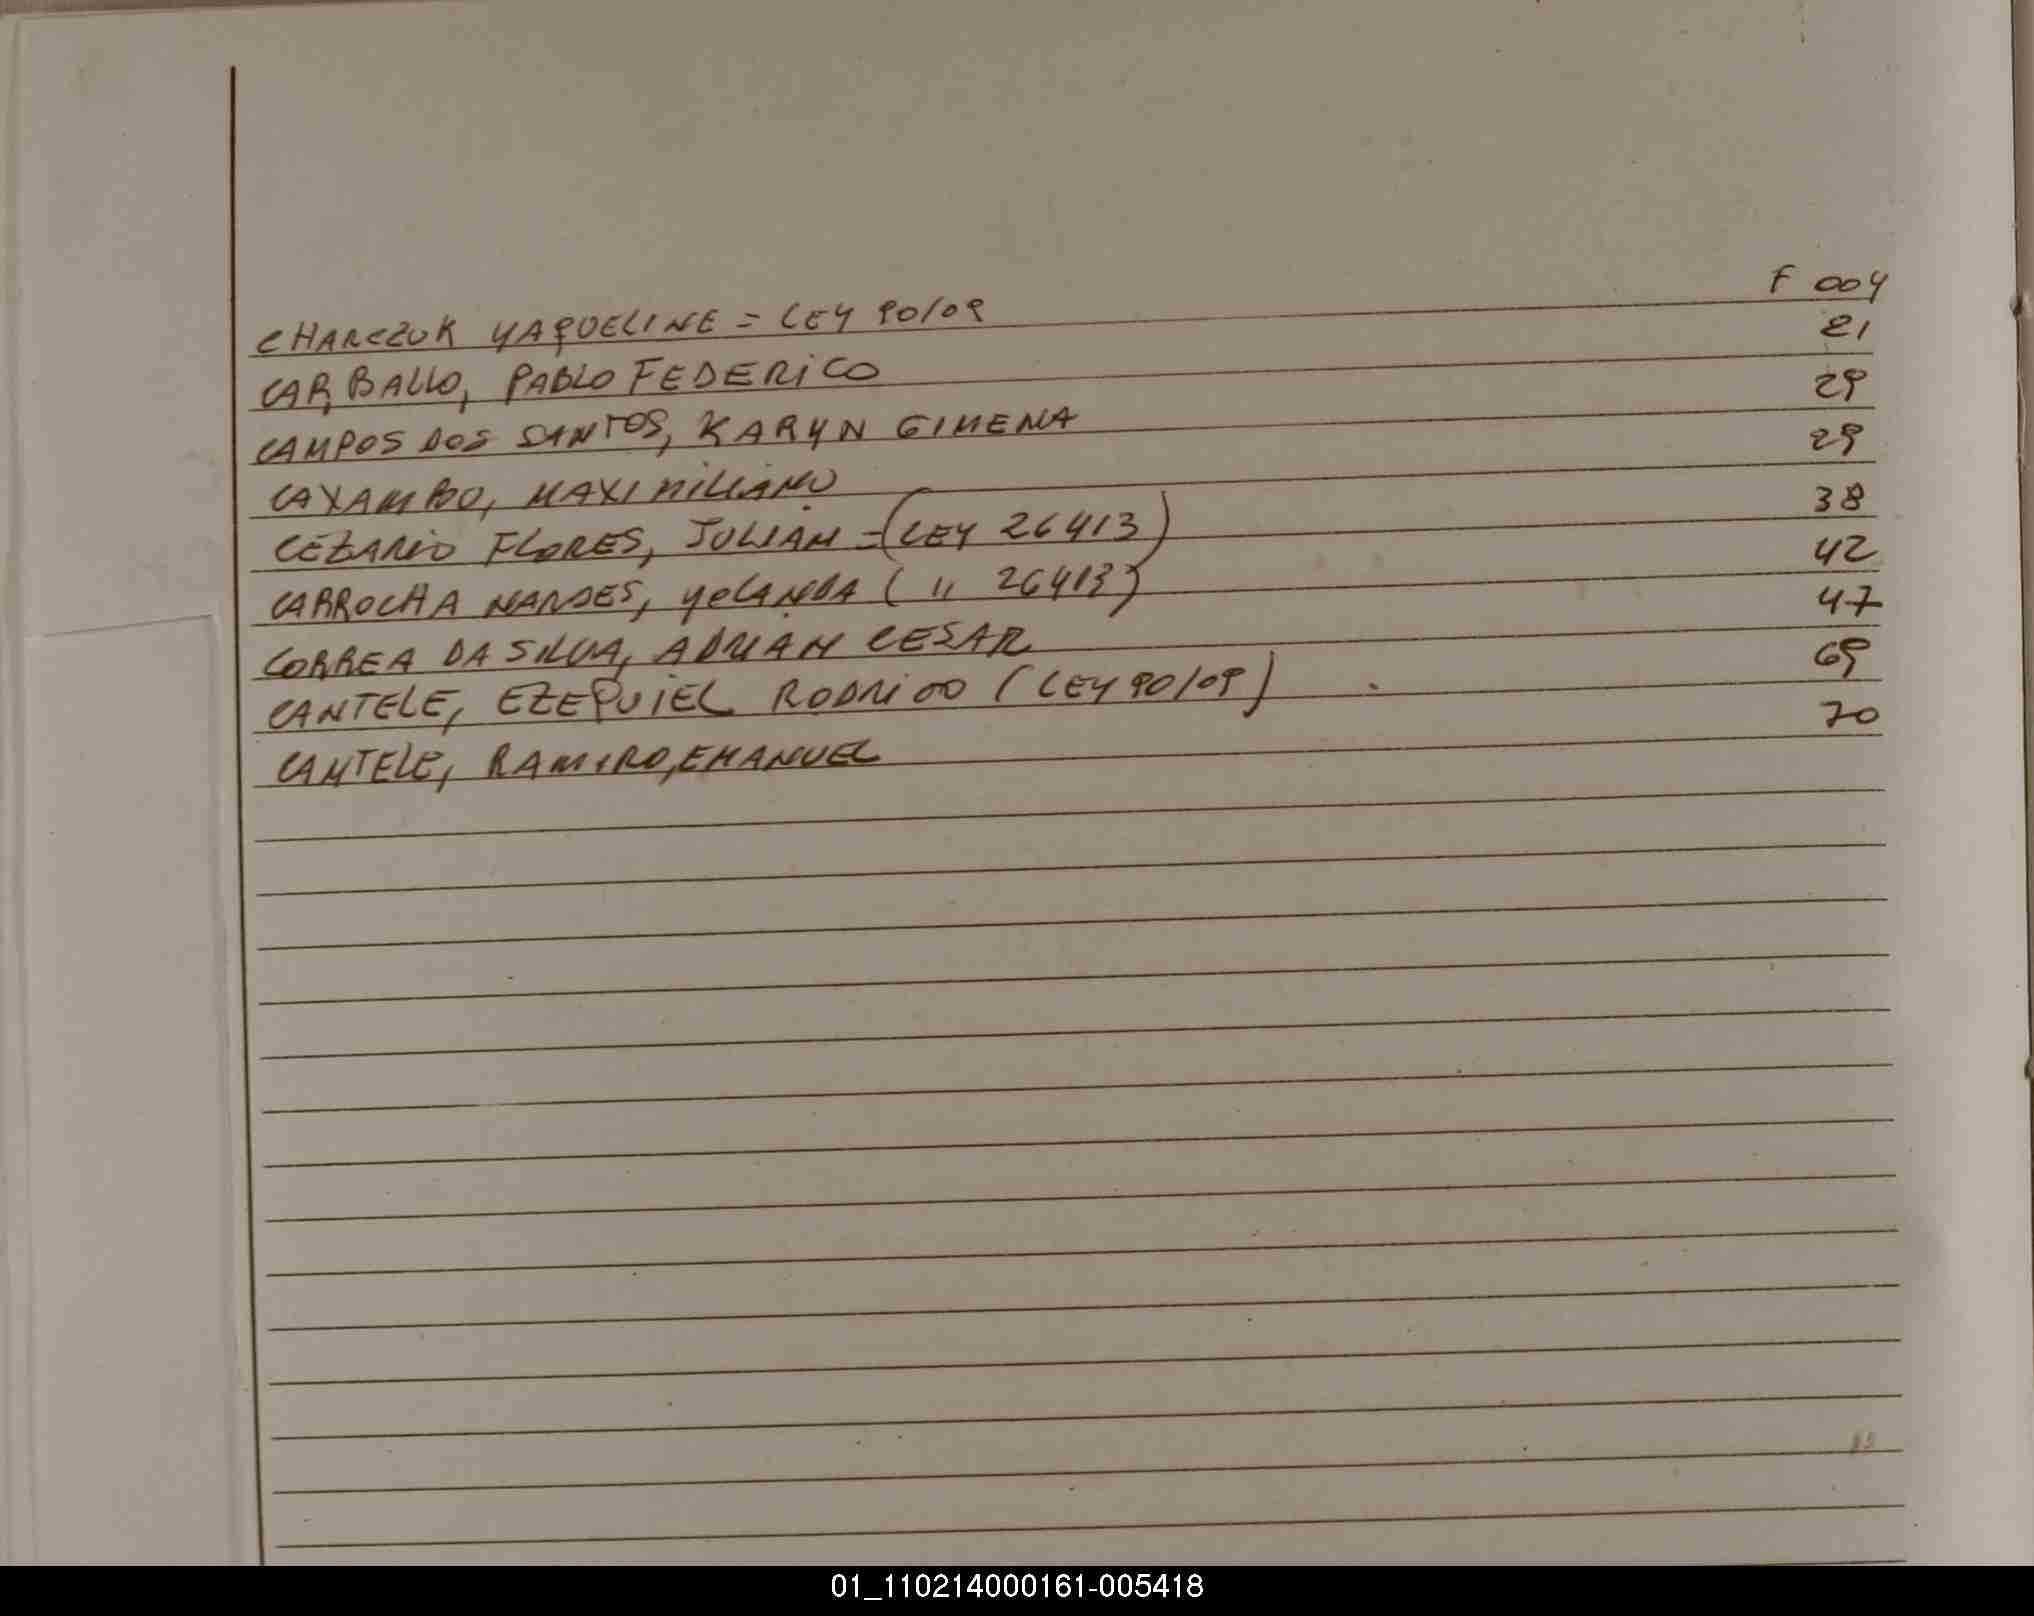 F 004
CHARCZUK YAQUELINE = LEY 90/09
CARBALLO, PABLO FEDERICO 21
CAMPOS DOS SANTOS, KARYN GIMENA 29
CAXAMBO, MAXIMILIANO 29
CEZARIO FLORES, JULIAN = (LEY 26413) 38
CARROCHA NARDES, YOLANDA ( " 26413) 42
CORREA DA SILVA, ADRIAN CESAR 47
CANTELE, EZEQUIEL RODRIGO (LEY 90/09) 69
CANTELE, RAMIRO, EMANUEL 70
01_110214000161-005418